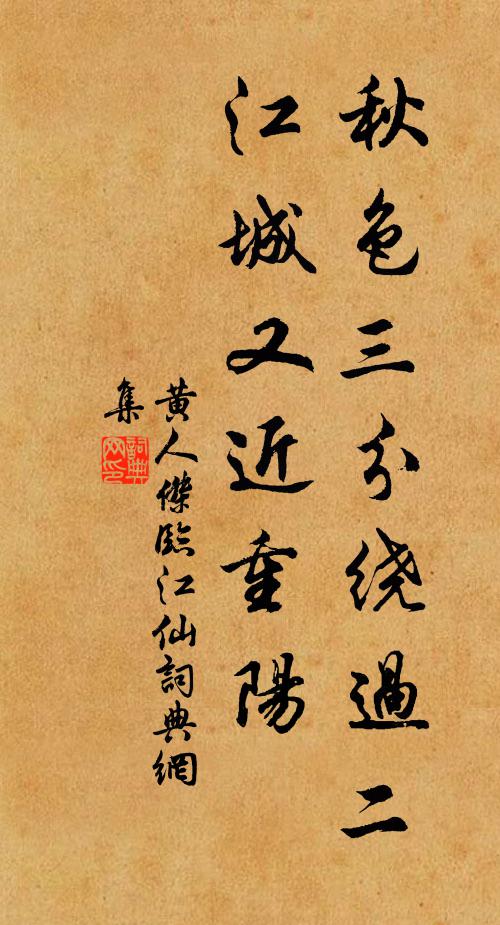 秋色三分绕過二
江城又近重陽
黄人傑臨江仙詞典網
集
詞典网印